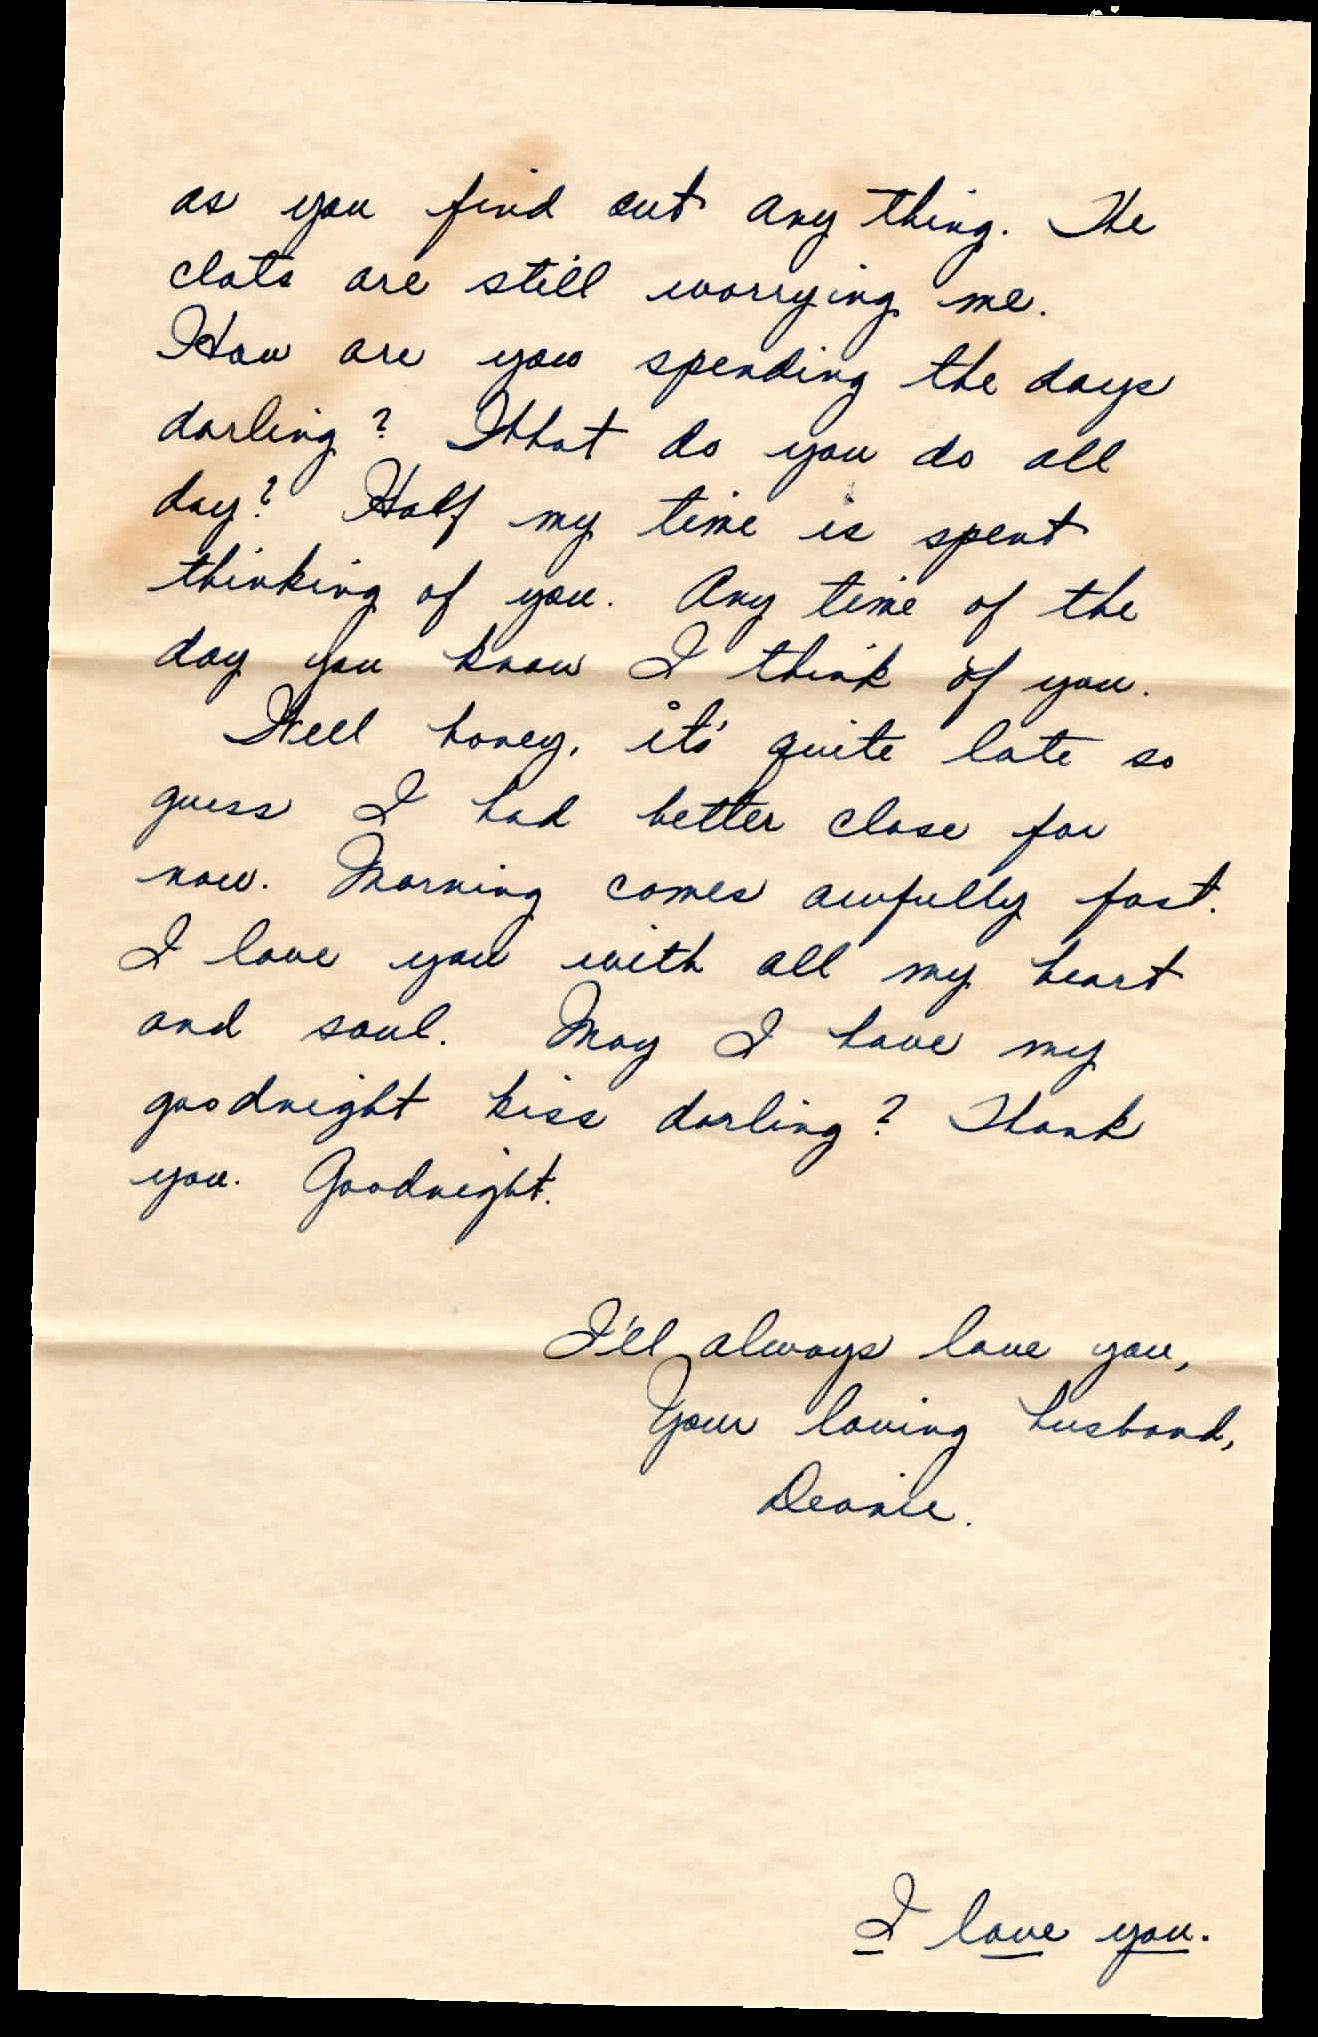 as you find out any thing. The
clots are still worrying me.
How are you spending the days
darling? What do you do all
day? Half my time is spent
thinking of you. Any time of the
day you know I think of you.
Well honey, it's quite late so
guess I had better close for
now. Morning comes awfully fast.
I love you with all my heart
and soul. May I have my
goodnight kiss darling? Thank
you. Goodnight.
I'll always love you,
Your loving husband,
Deanie.
I love you.